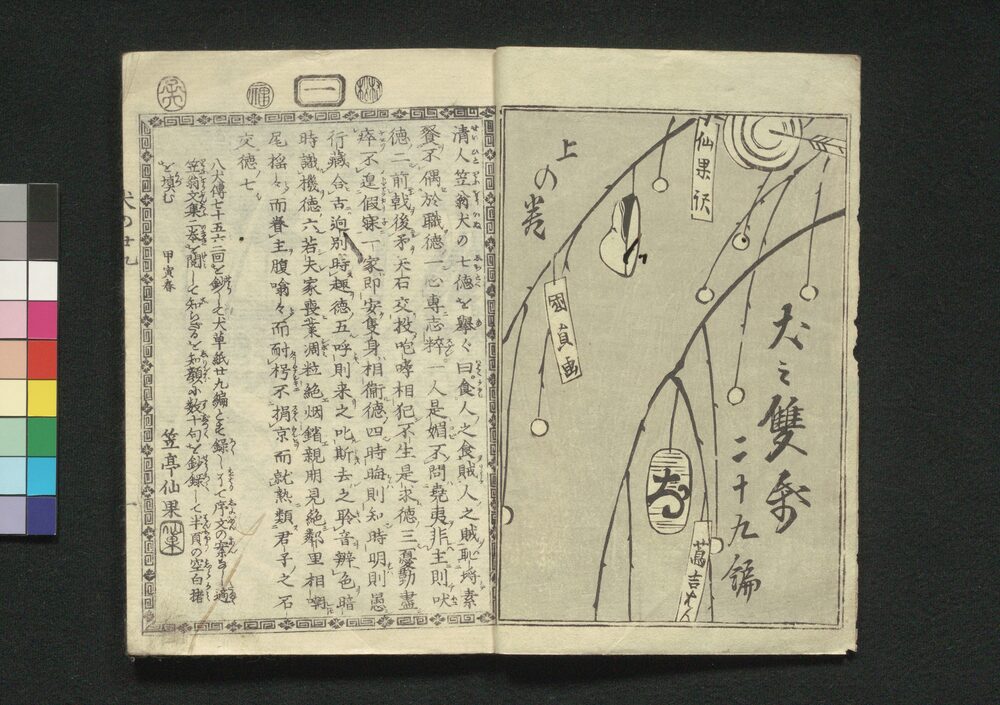 仙果訳
犬之雙帋
二十九編
上の巻
國貞画
蔦吉はん
一
清人笠翁犬の七徳を擧て曰食人之食賊人之賊恥埒素
餐不偶於職徳一心専志粹一人是媚不問堯夷非主則吠
徳二前戟後矛矢石交投咆哮相犯不生是求徳三憂勤盡
瘁不遑假寐一家即安隻身相衞徳四時晦則知時明則愚
行藏合古逈別時趣徳五呼則来之叱斯去之聆音辨色暗
時識機徳六若夫家喪業凋粒絶烟銷親朋見絶鄰里相嘲
尾揺々而眷主腹喻々而耐枵不捐京而就熟類君子之石
交徳七
八犬傳七十五六二回を鈔して犬草紙廿九編とも録し
笠翁文集二巻を閲して知らざるを知顔小数十句を鈔録して半頁の空白
を填む
甲寅春
笠亭仙果
犬の廿九
一